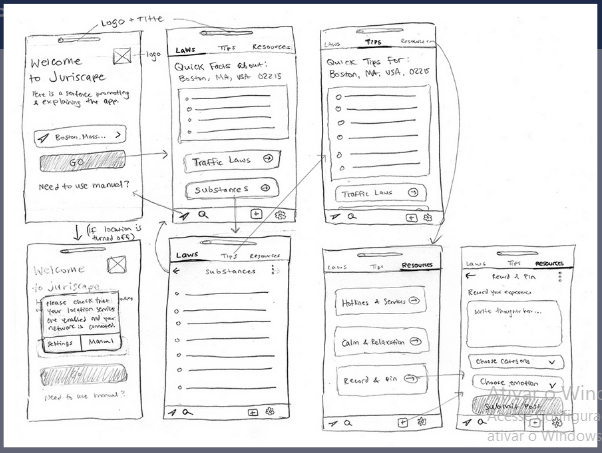 Logo + Title
Logo
Welcome
to Juriscape
Here is a sentence promoting
& explaining the app.
Boston, Mass...
GO
Need to use manual?
Laws Tips Resources
Quick Facts about:
Boston, MA, USA, 02215
Traffic Laws
Substances
Laws Tips Resources
Quick Tips for:
Boston, MA, USA, 02215
Traffic Laws
(if location is
turned off)
Welcome
to Juriscape
Please check that
your location services
are enabled and your
network is connected.
Settings Manual
Need to use manual?
Laws Tips Resources
Substances
Laws Tips Resources
Hotlines & Services
Calm & Relaxation
Record & Pin
Laws Tips Resources
Record & Pin
Record your experience
Write thoughts here...
Choose category
Choose emotion
Submit & Post
Ativar o Wind
Acesse Configura
ativar o Windows